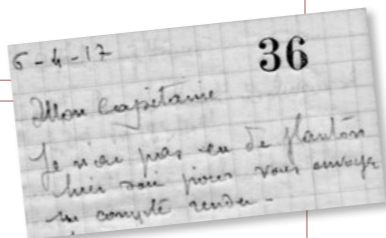 6-4-17
36
Mon Capitaine
Je n'ai pas eu de planton
hier soir pour vous envoyer
un compte rendu -